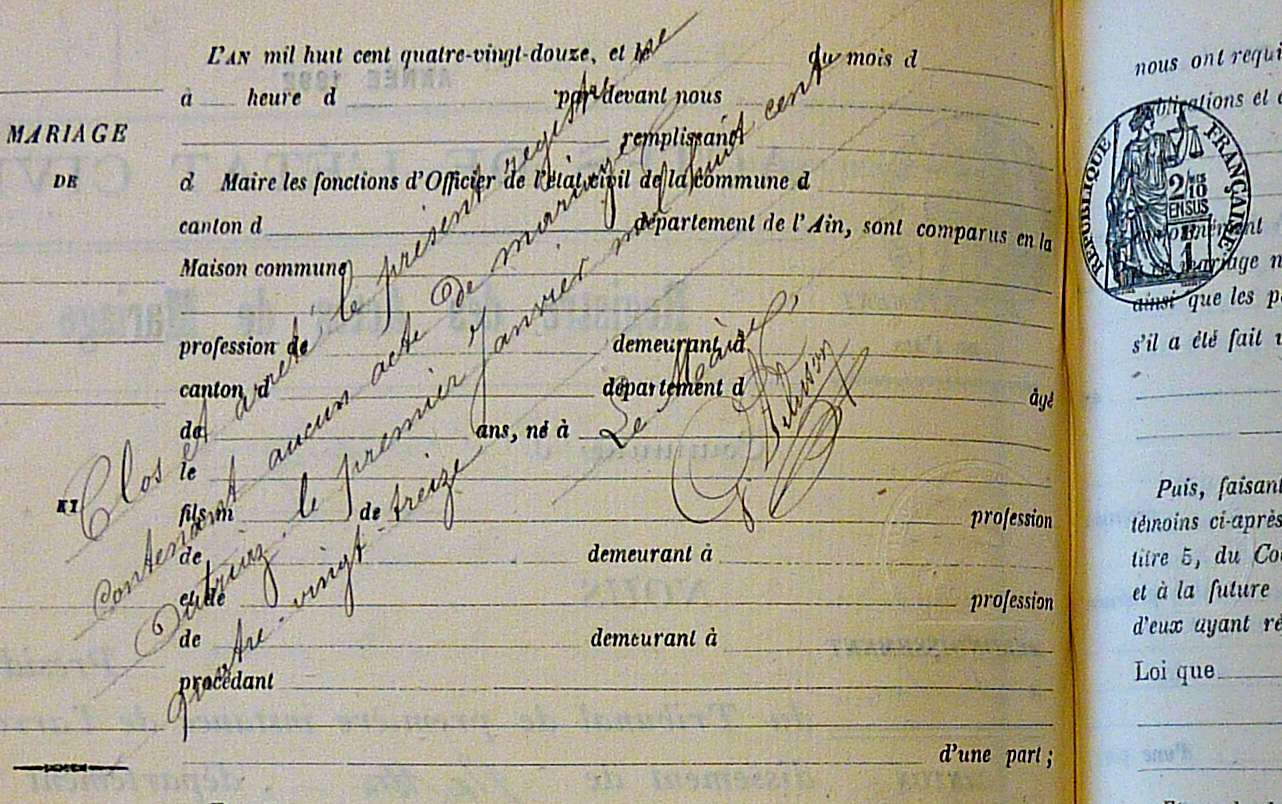 L'AN mil huit cent quatre-vingt-douze, et le du mois d
à heure d par devant nous
remplissant
MARIAGE
DE
d Maire les fonctions d'Officier de l'état civil de la commune d
canton d département de l'Ain, sont comparus en la
Maison commune
profession de demeurant à
canton d département d
âgé
de ans, né à
le
ET
fils m de profession
de demeurant à
et de profession
de demeurant à
procédant
d'une part ;
Clos et arrêté le présent registre
Contenant aucun acte de mariage
le premier Janvier mil huit cent
quatre-vingt-treize
Le Maire,
nous ont requi
publications et
RÉPUBLIQUE FRANÇAISE
2/10
EN SUS
mariage
ainsi que les p
s'il a été fait
Puis, faisant
témoins ci-après
titre 5, du Co
et à la future
d'eux ayant ré
Loi que